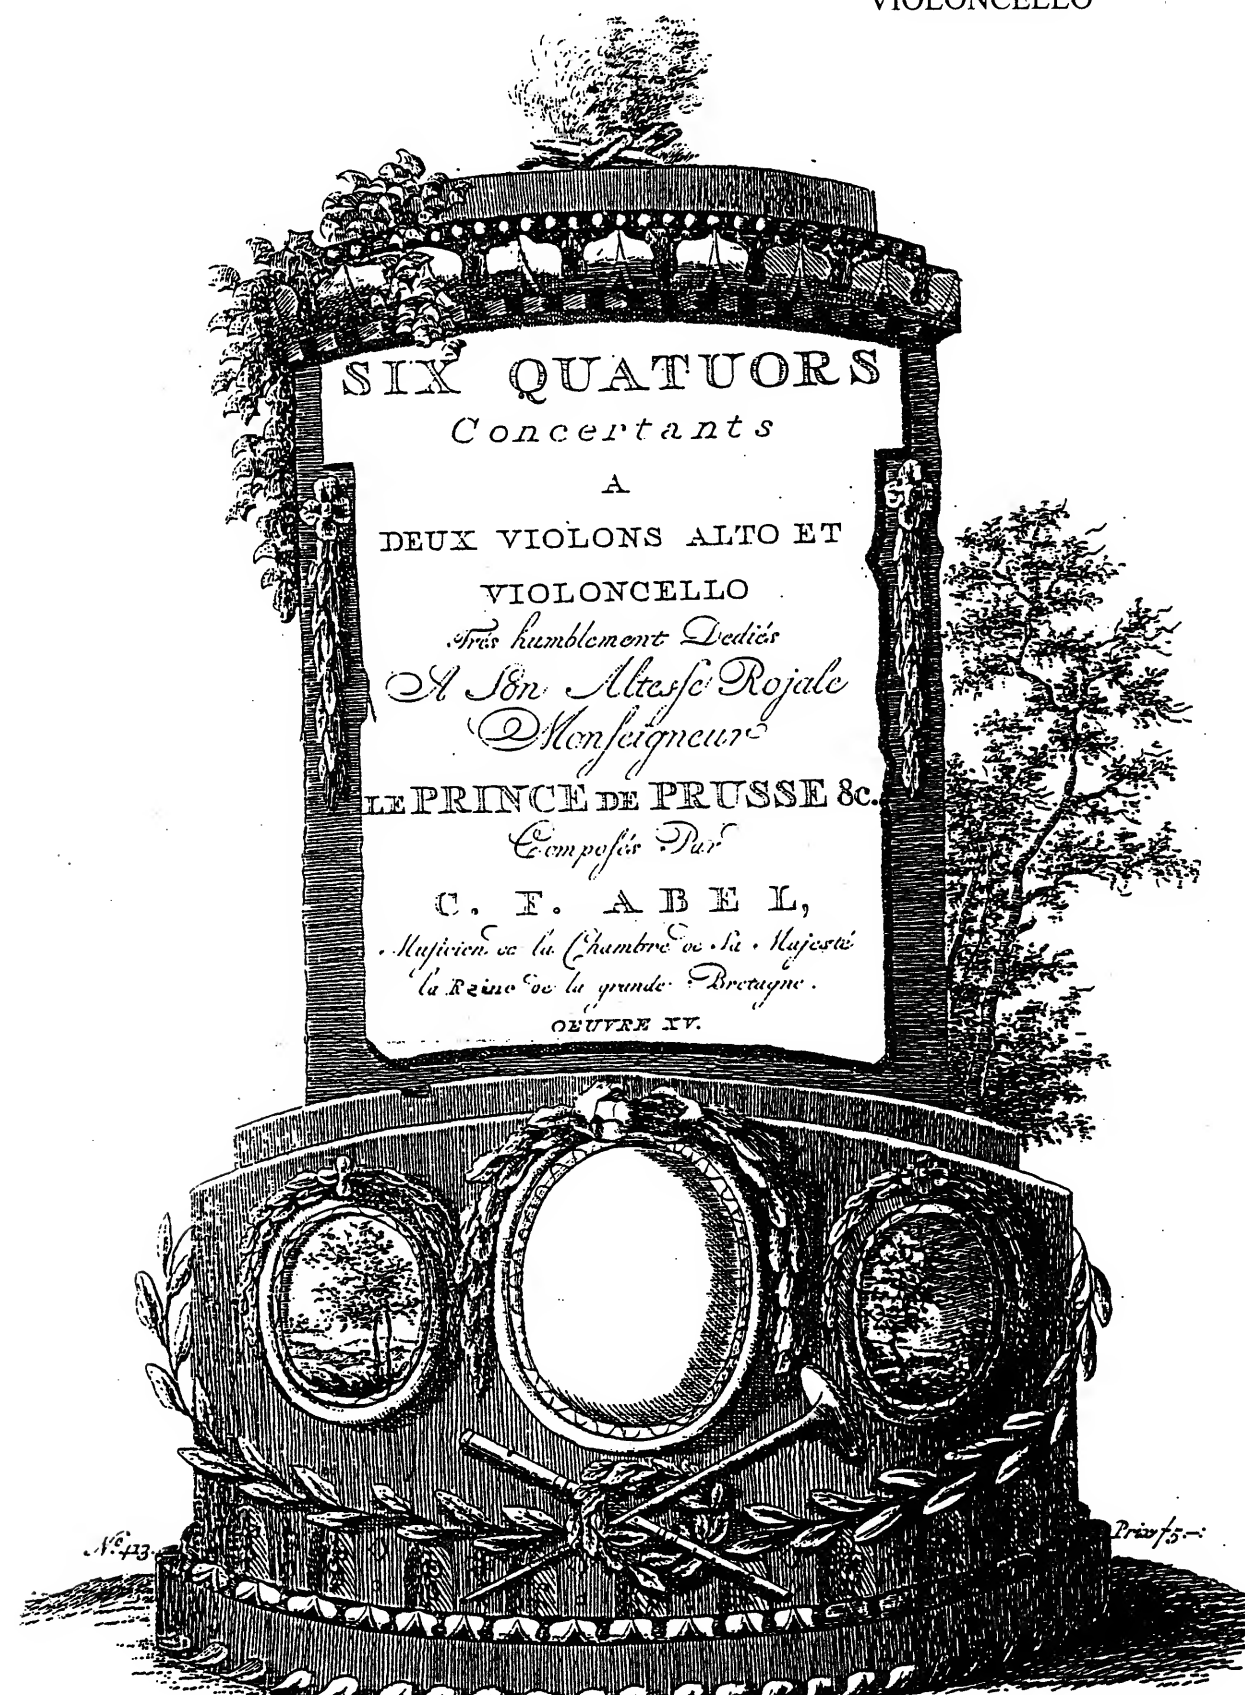 VIOLONCELLO
SIX QUATUORS
Concertants
A
DEUX VIOLONS ALTO ET
VIOLONCELLO
Trés humblement Dediés
A Son Altesse Rojale
Monseigneur
LE PRINCE DE PRUSSE &c.
Composés Par
C. F. ABEL,
Musicien de la Chambre de Sa Majesté
la Reine de la grande Bretagne.
OEUVRE XV.
N.º 413.
Prix f 5.-: